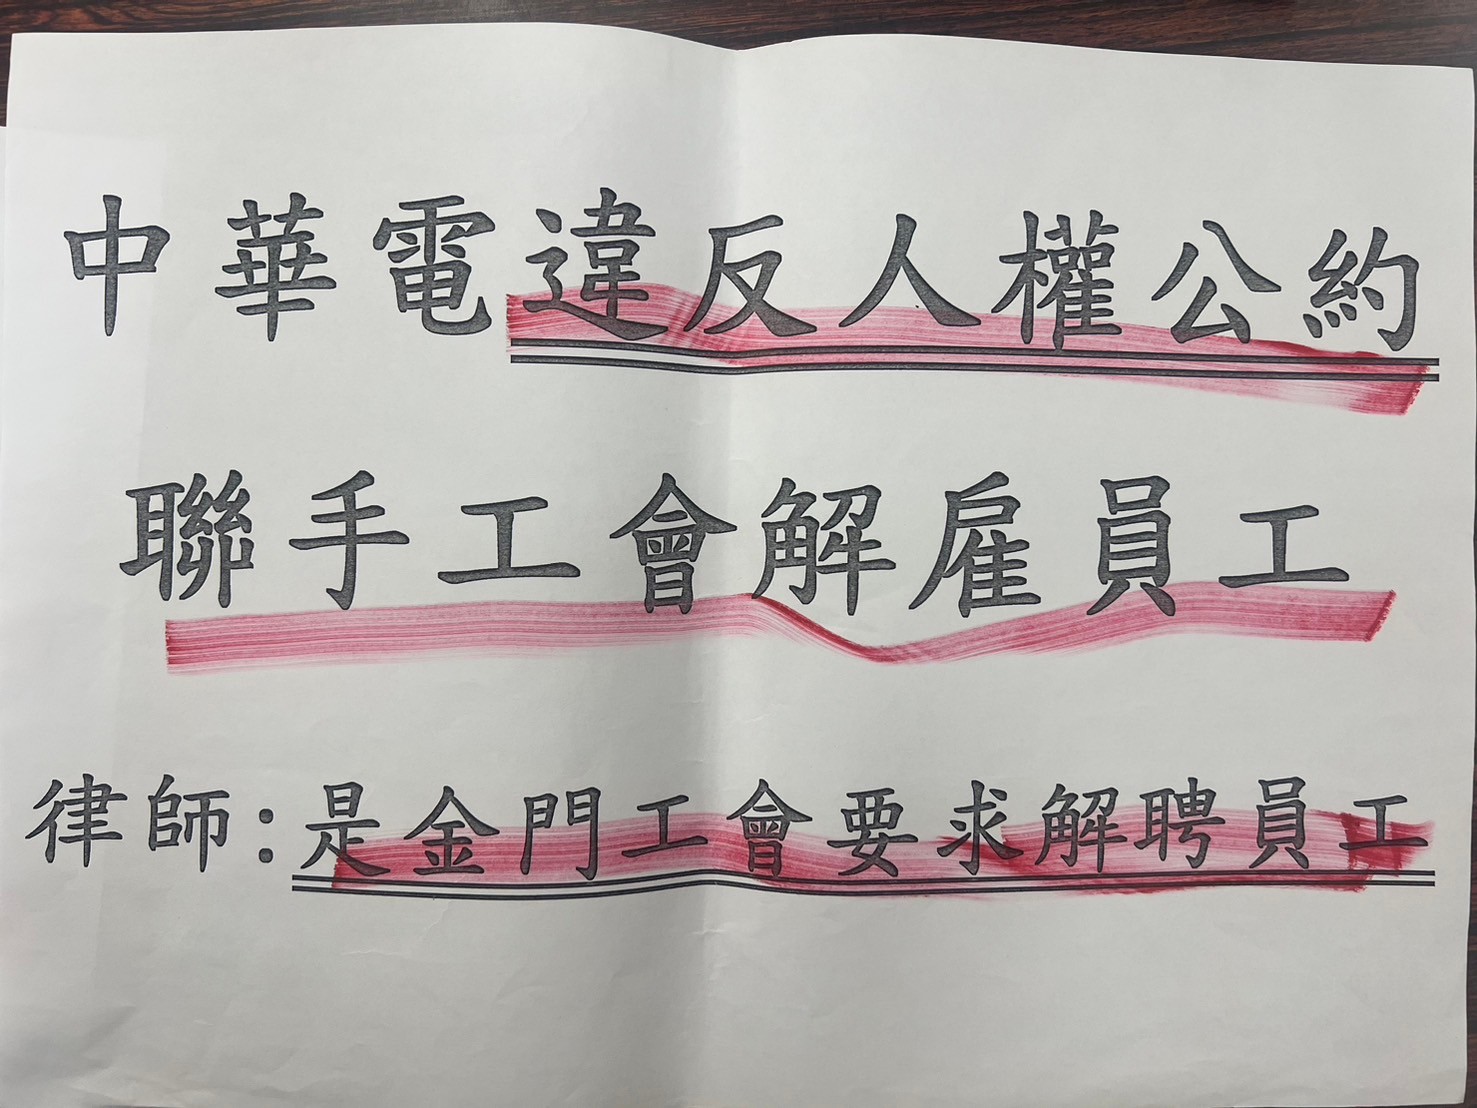 中華電違反人權公約
聯手工會解雇員工
律師:是金門工會要求解聘員工